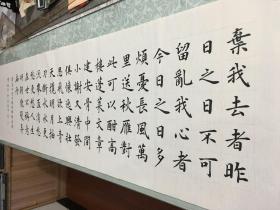 棄我去者昨
日之日不可
留亂我心者
今日之日多
煩憂長風萬
里送秋雁對
此可以酣高
樓蓬萊文章
建安骨中間
小謝又清發
俱懷逸興壯
思飛欲上青
天明月抽
刀斷水水更
流舉杯愁
愁更愁人生
在世不稱意
明朝散髮弄
扁舟